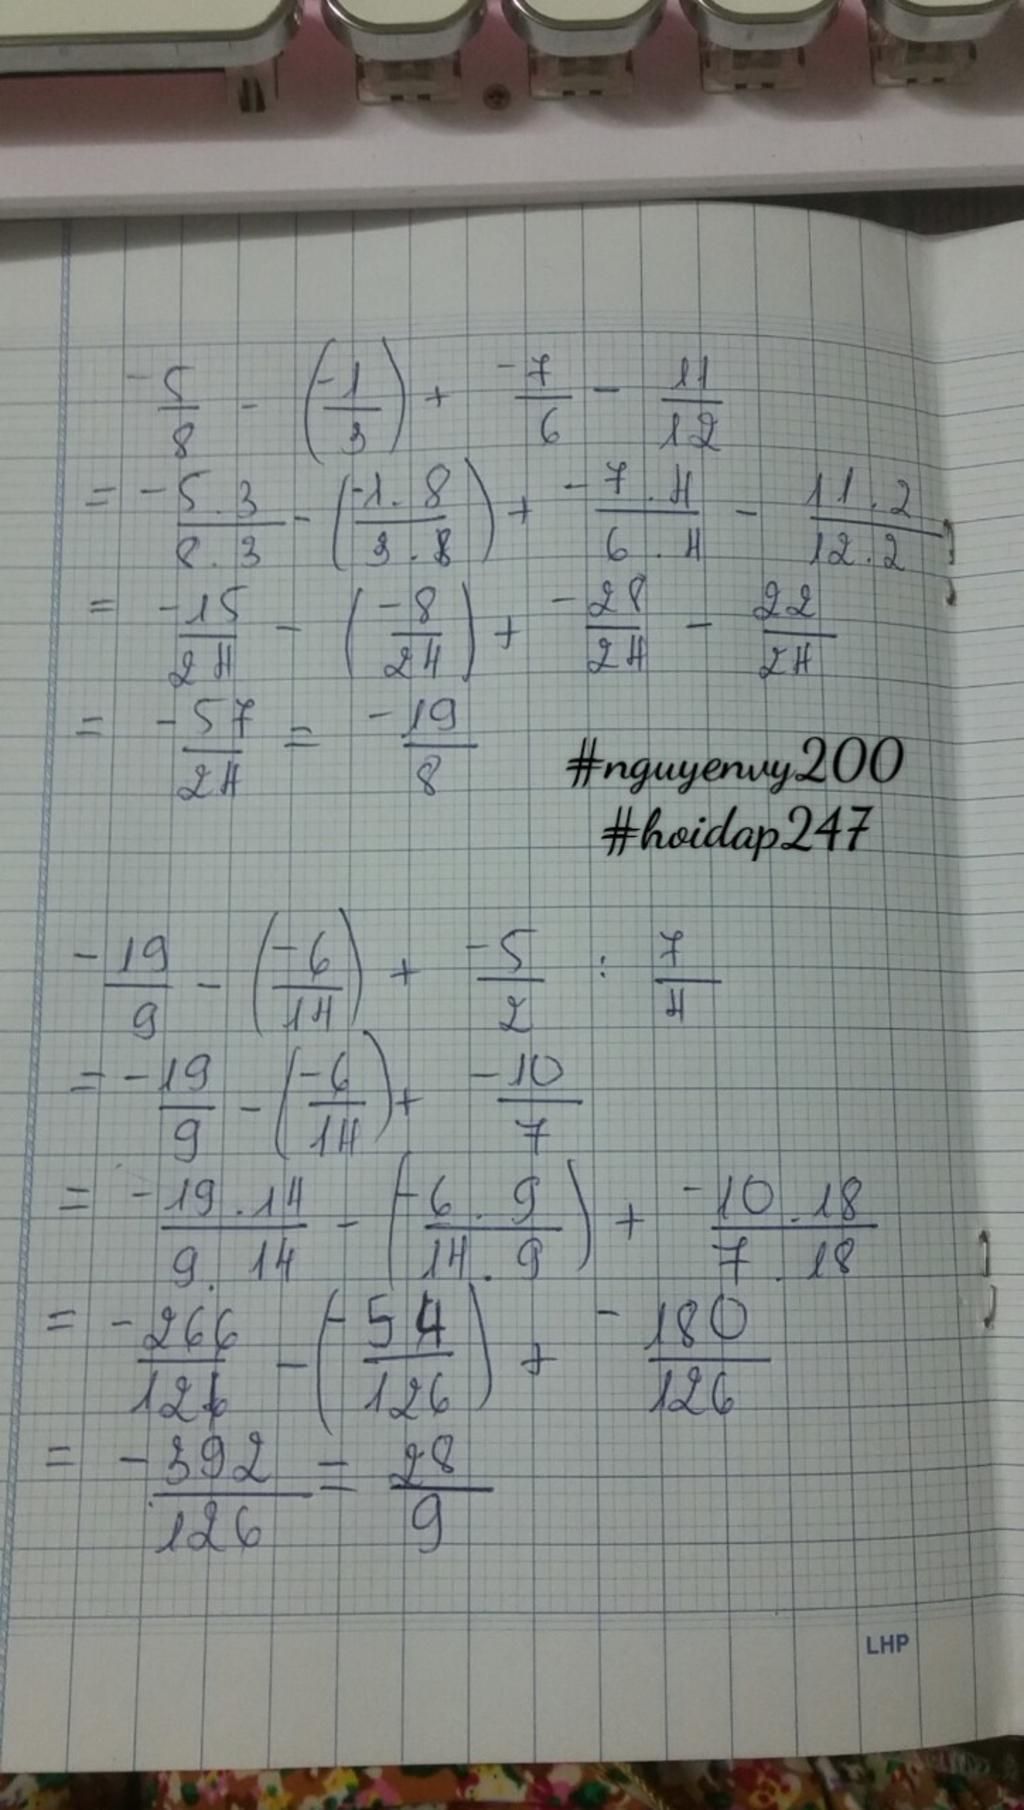 -5/8 - (-1/3) + -7/6 - 11/12
= -5.3/8.3 - (-1.8/3.8) + -7.4/6.4 - 11.2/12.2
= -15/24 - (-8/24) + -28/24 - 22/24
= -57/24 = -19/8
#nguyenvy200
#hoidap247
-19/9 - (-6/14) + -5/2 : 7/4
= -19/9 - (-6/14) + -10/7
= -19.14/9.14 - (-6.9/14.9) + -10.18/7.18
= -266/126 - (-54/126) + -180/126
= -392/126 = 28/9
LHP